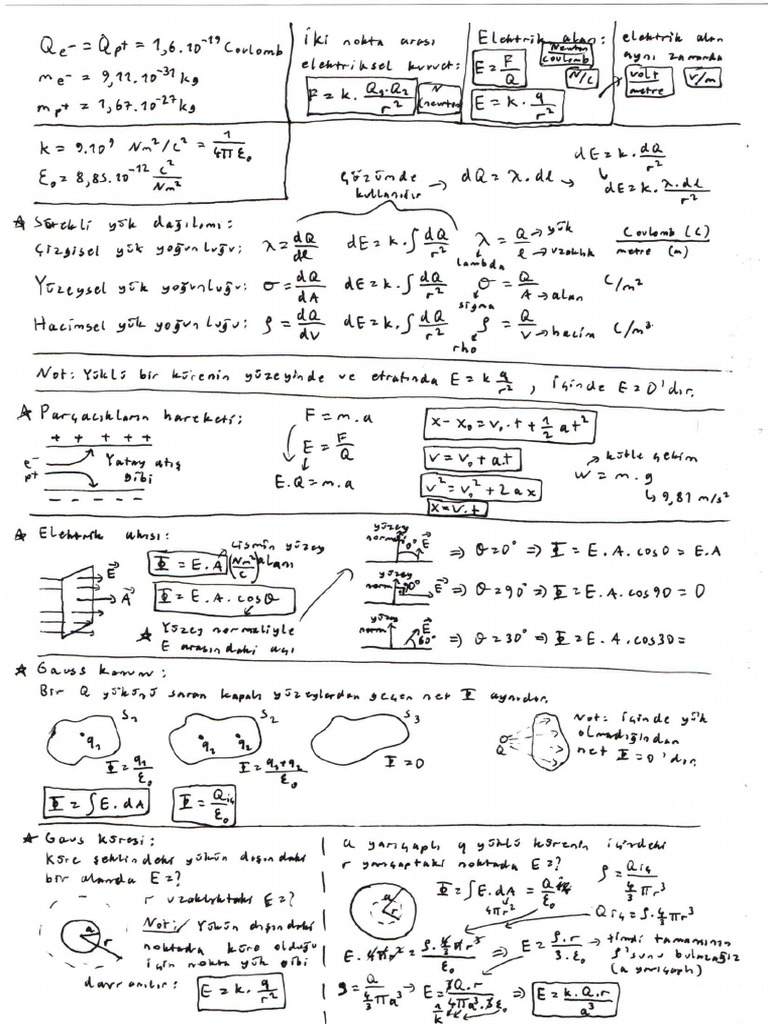 Qe⁻ = Qp⁺ = 1,6.10⁻¹⁹ Coulomb
me⁻ = 9,11.10⁻³¹ kg
mp⁺ = 1,67.10⁻²⁷ kg
İki nokta arası
elektriksel kuvvet:
F = k. Q₁.Q₂/r² N (newton)
Elektrik alan:
E = F/Q Newton/coulomb N/C
E = k. q/r²
elektrik alan
aynı zamanda
volt/metre V/m
k = 9.10⁹ Nm²/C² = 1/4πε₀
ε₀ = 8,85.10⁻¹² C²/Nm²
çözümde kullanılır → dQ = λ.dl → dE = k. dQ/r²
dE = k. λ.dl/r²
★ Sürekli yük dağılımı:
Çizgisel yük yoğunluğu: λ = dQ/dl dE = k.∫dQ/r² λ = Q/l → yük → uzaklık Coulomb (C)/metre (m)
lambda
Yüzeysel yük yoğunluğu: σ = dQ/dA dE = k.∫dQ/r² σ = Q/A → alan C/m²
sigma
Hacimsel yük yoğunluğu: ρ = dQ/dV dE = k.∫dQ/r² ρ = Q/V → hacim C/m³
rho
Not: Yüklü bir kürenin yüzeyinde ve etrafında E = k q/r² , içinde E = 0'dır.
★ Parçacıkların hareketi:
+ + + + +
e⁻ Yatay atış
p⁺ gibi
– – – – –
F = m.a
E = F/Q
E.Q = m.a
x - x₀ = v₀.t + 1/2 at²
v = v₀ + a.t
v² = v₀² + 2ax
x = v.t
kütle çekim
W = m.g
↳ 9,81 m/s²
★ Elektrik akısı:
E A
Φ = E.A (Nm²/C) cismin yüzey alanı
Φ = E.A.cosθ
★ Yüzey normaliyle
E arasındaki açı
yüzey normali 0° E ⇒ θ = 0° ⇒ Φ = E.A.cos0 = E.A
yüzey norm 90° E ⇒ θ = 90° ⇒ Φ = E.A.cos90 = 0
yüzey norm E 60° ⇒ θ = 30° ⇒ Φ = E.A.cos30 =
★ Gauss kanunu:
Bir Q yükünü saran kapalı yüzeylerden geçen net Φ aynıdır.
S₁ S₂ S₃
q₁ q₁ q₂
Φ = q₁/ε₀ Φ = q₁+q₂/ε₀ Φ = 0
Q
Not: içinde yük
olmadığından
net Φ = 0'dır.
Φ = ∫E.dA Φ = Qiç/ε₀
★ Gaus küresi:
Küre şeklindeki yükün dışındaki
bir alanda E = ?
r uzaklıktaki E = ?
a r
Not: Yükün dışındaki
noktada küre olduğu
için nokta yük gibi
davranılır: E = k. q/r²
a yarıçaplı q yüklü kürenin içindeki
r yarıçaptaki noktada E = ?
a r
Φ = ∫E.dA = Qiç/ε₀
4πr²
ρ = Qiç/(4/3 πr³)
Qiç = ρ.4/3 πr³
E.4πr² = ρ.4/3 πr³/ε₀ ⇒ E = ρ.r/3.ε₀ → şimdi tamamının
ρ'sunu bulacağız
(a yarıçaplı)
ρ = Q/(4/3 πa³) → E = 3Q.r/4πa³.3ε₀ ⇒ E = k.Q.r/a³
1/k